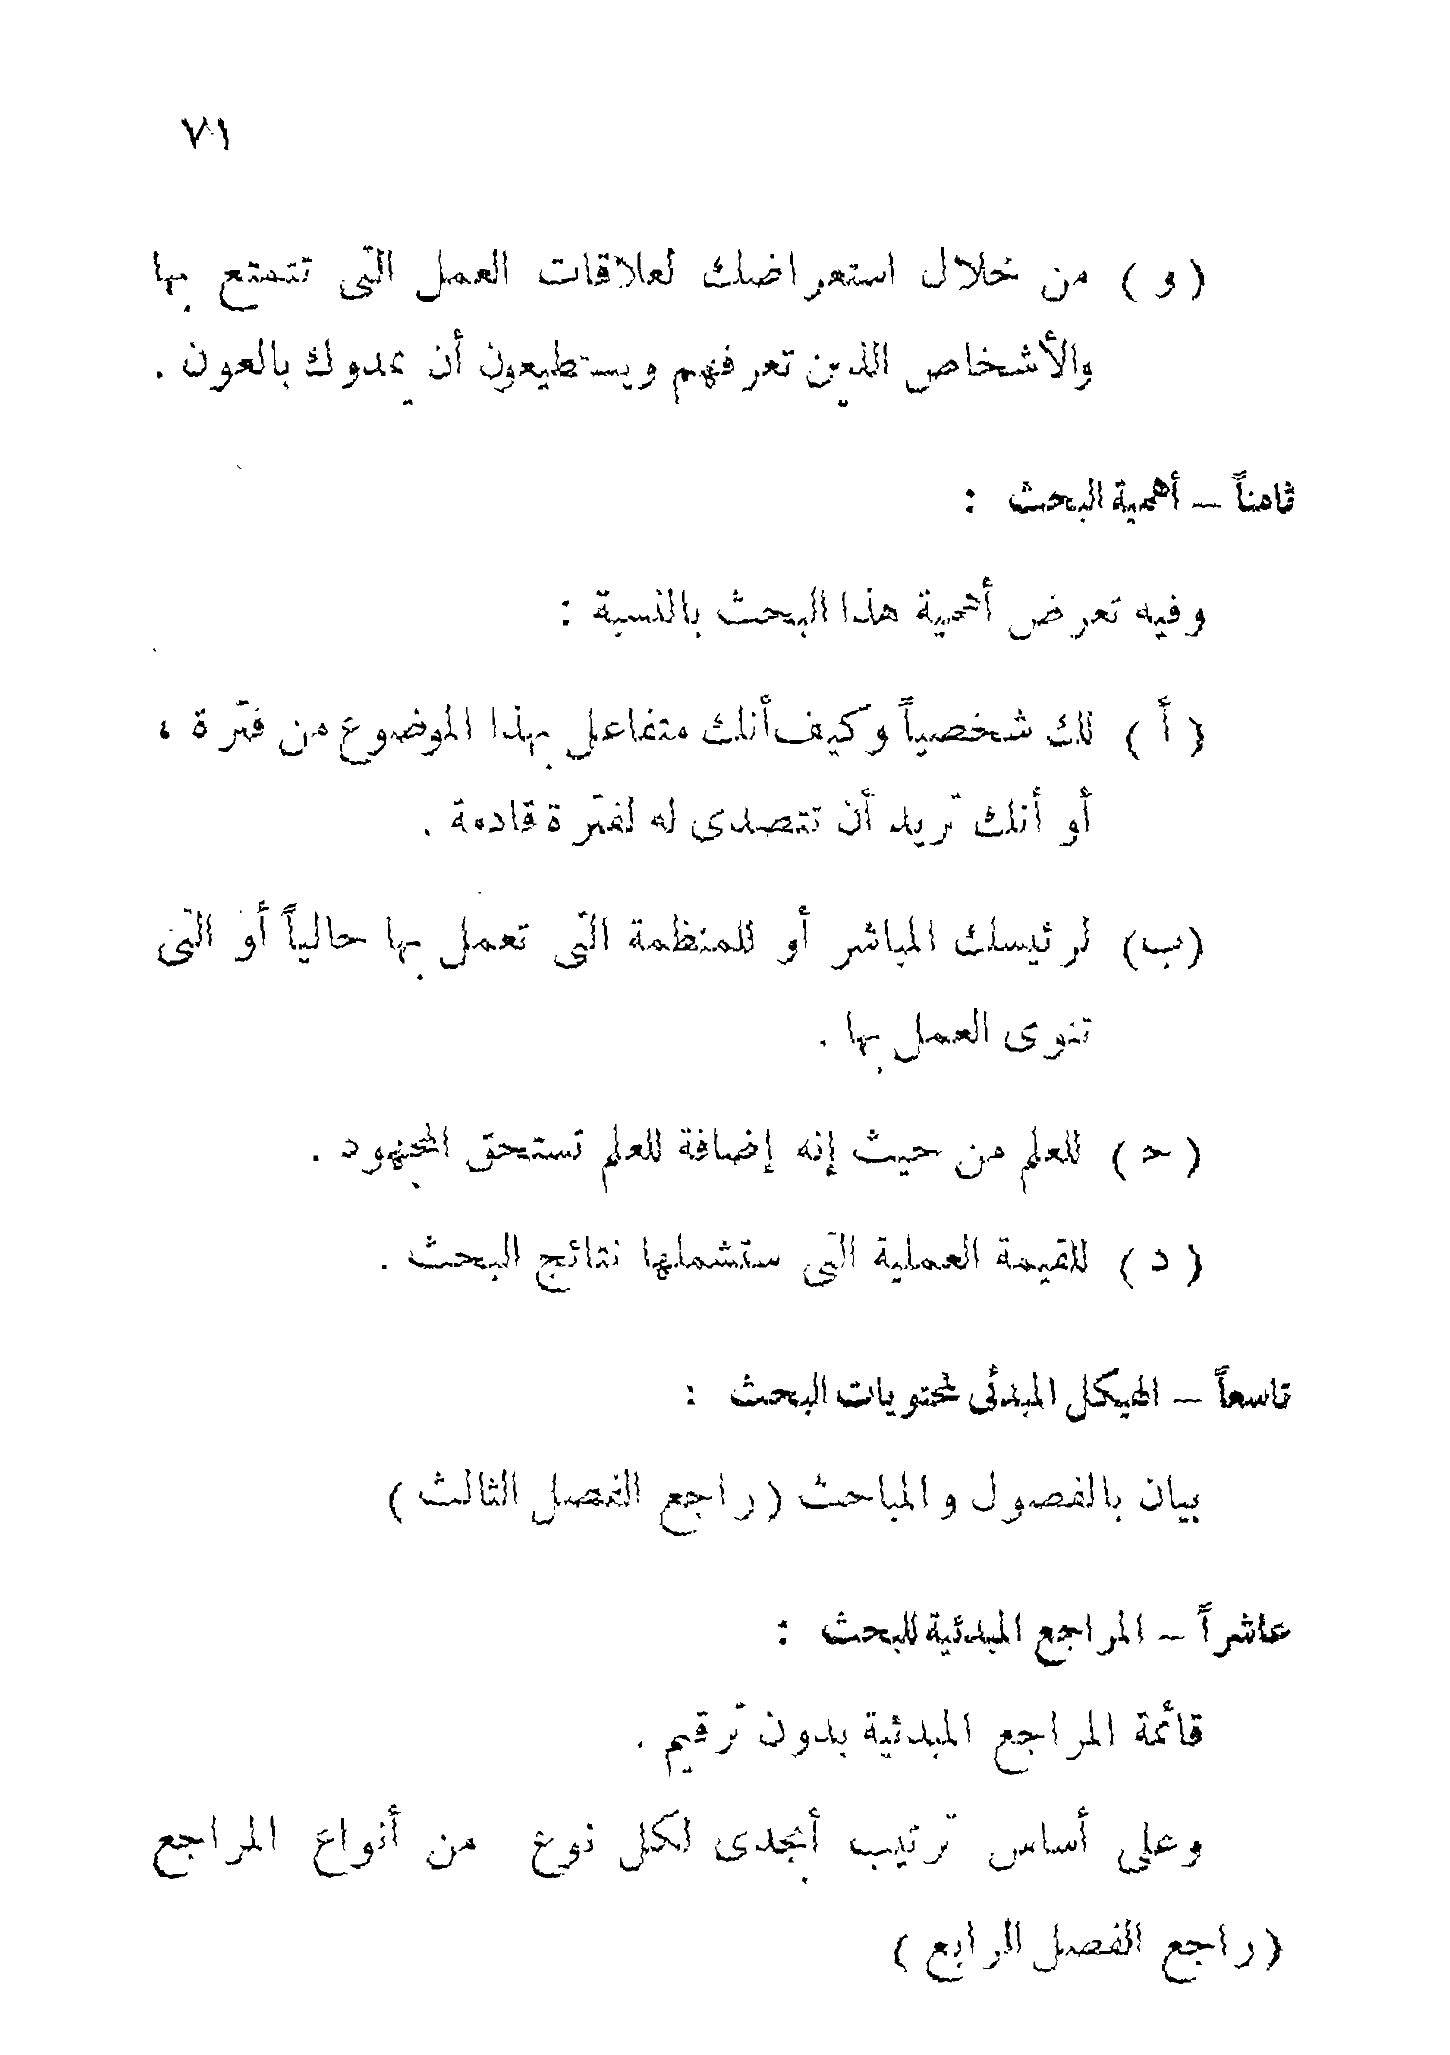 ٧١
( و ) من خلال استعراضك لعلاقات العمل التى تتمتع بها
والأشخاص الذين تعرفهم ويستطيعون أن يمدوك بالعون .
ثامناً – أهمية البحث :
وفيه تعرض أهمية هذا البحث بالنسبة :
( أ ) لك شخصياً وكيف أنك متفاعل بهذا الموضوع من فترة ،
أو أنك تريد أن تتصدى له لفترة قادمة .
(ب) لرئيسك المباشر أو للمنظمة التى تعمل بها حالياً أو التى
تنوى العمل بها .
( حـ ) للعلم من حيث إنه إضافة للعلم تستحق المجهود .
( د ) للقيمة العملية التى ستشملها نتائج البحث .
تاسعاً – الهيكل المبدئى لمحتويات البحث :
بيان بالفصول والمباحث ( راجع الفصل الثالث )
عاشراً – المراجع المبدئية للبحث :
قائمة المراجع المبدئية بدون ترقيم .
وعلى أساس ترتيب أبجدى لكل نوع من أنواع المراجع
( راجع الفصل الرابع )